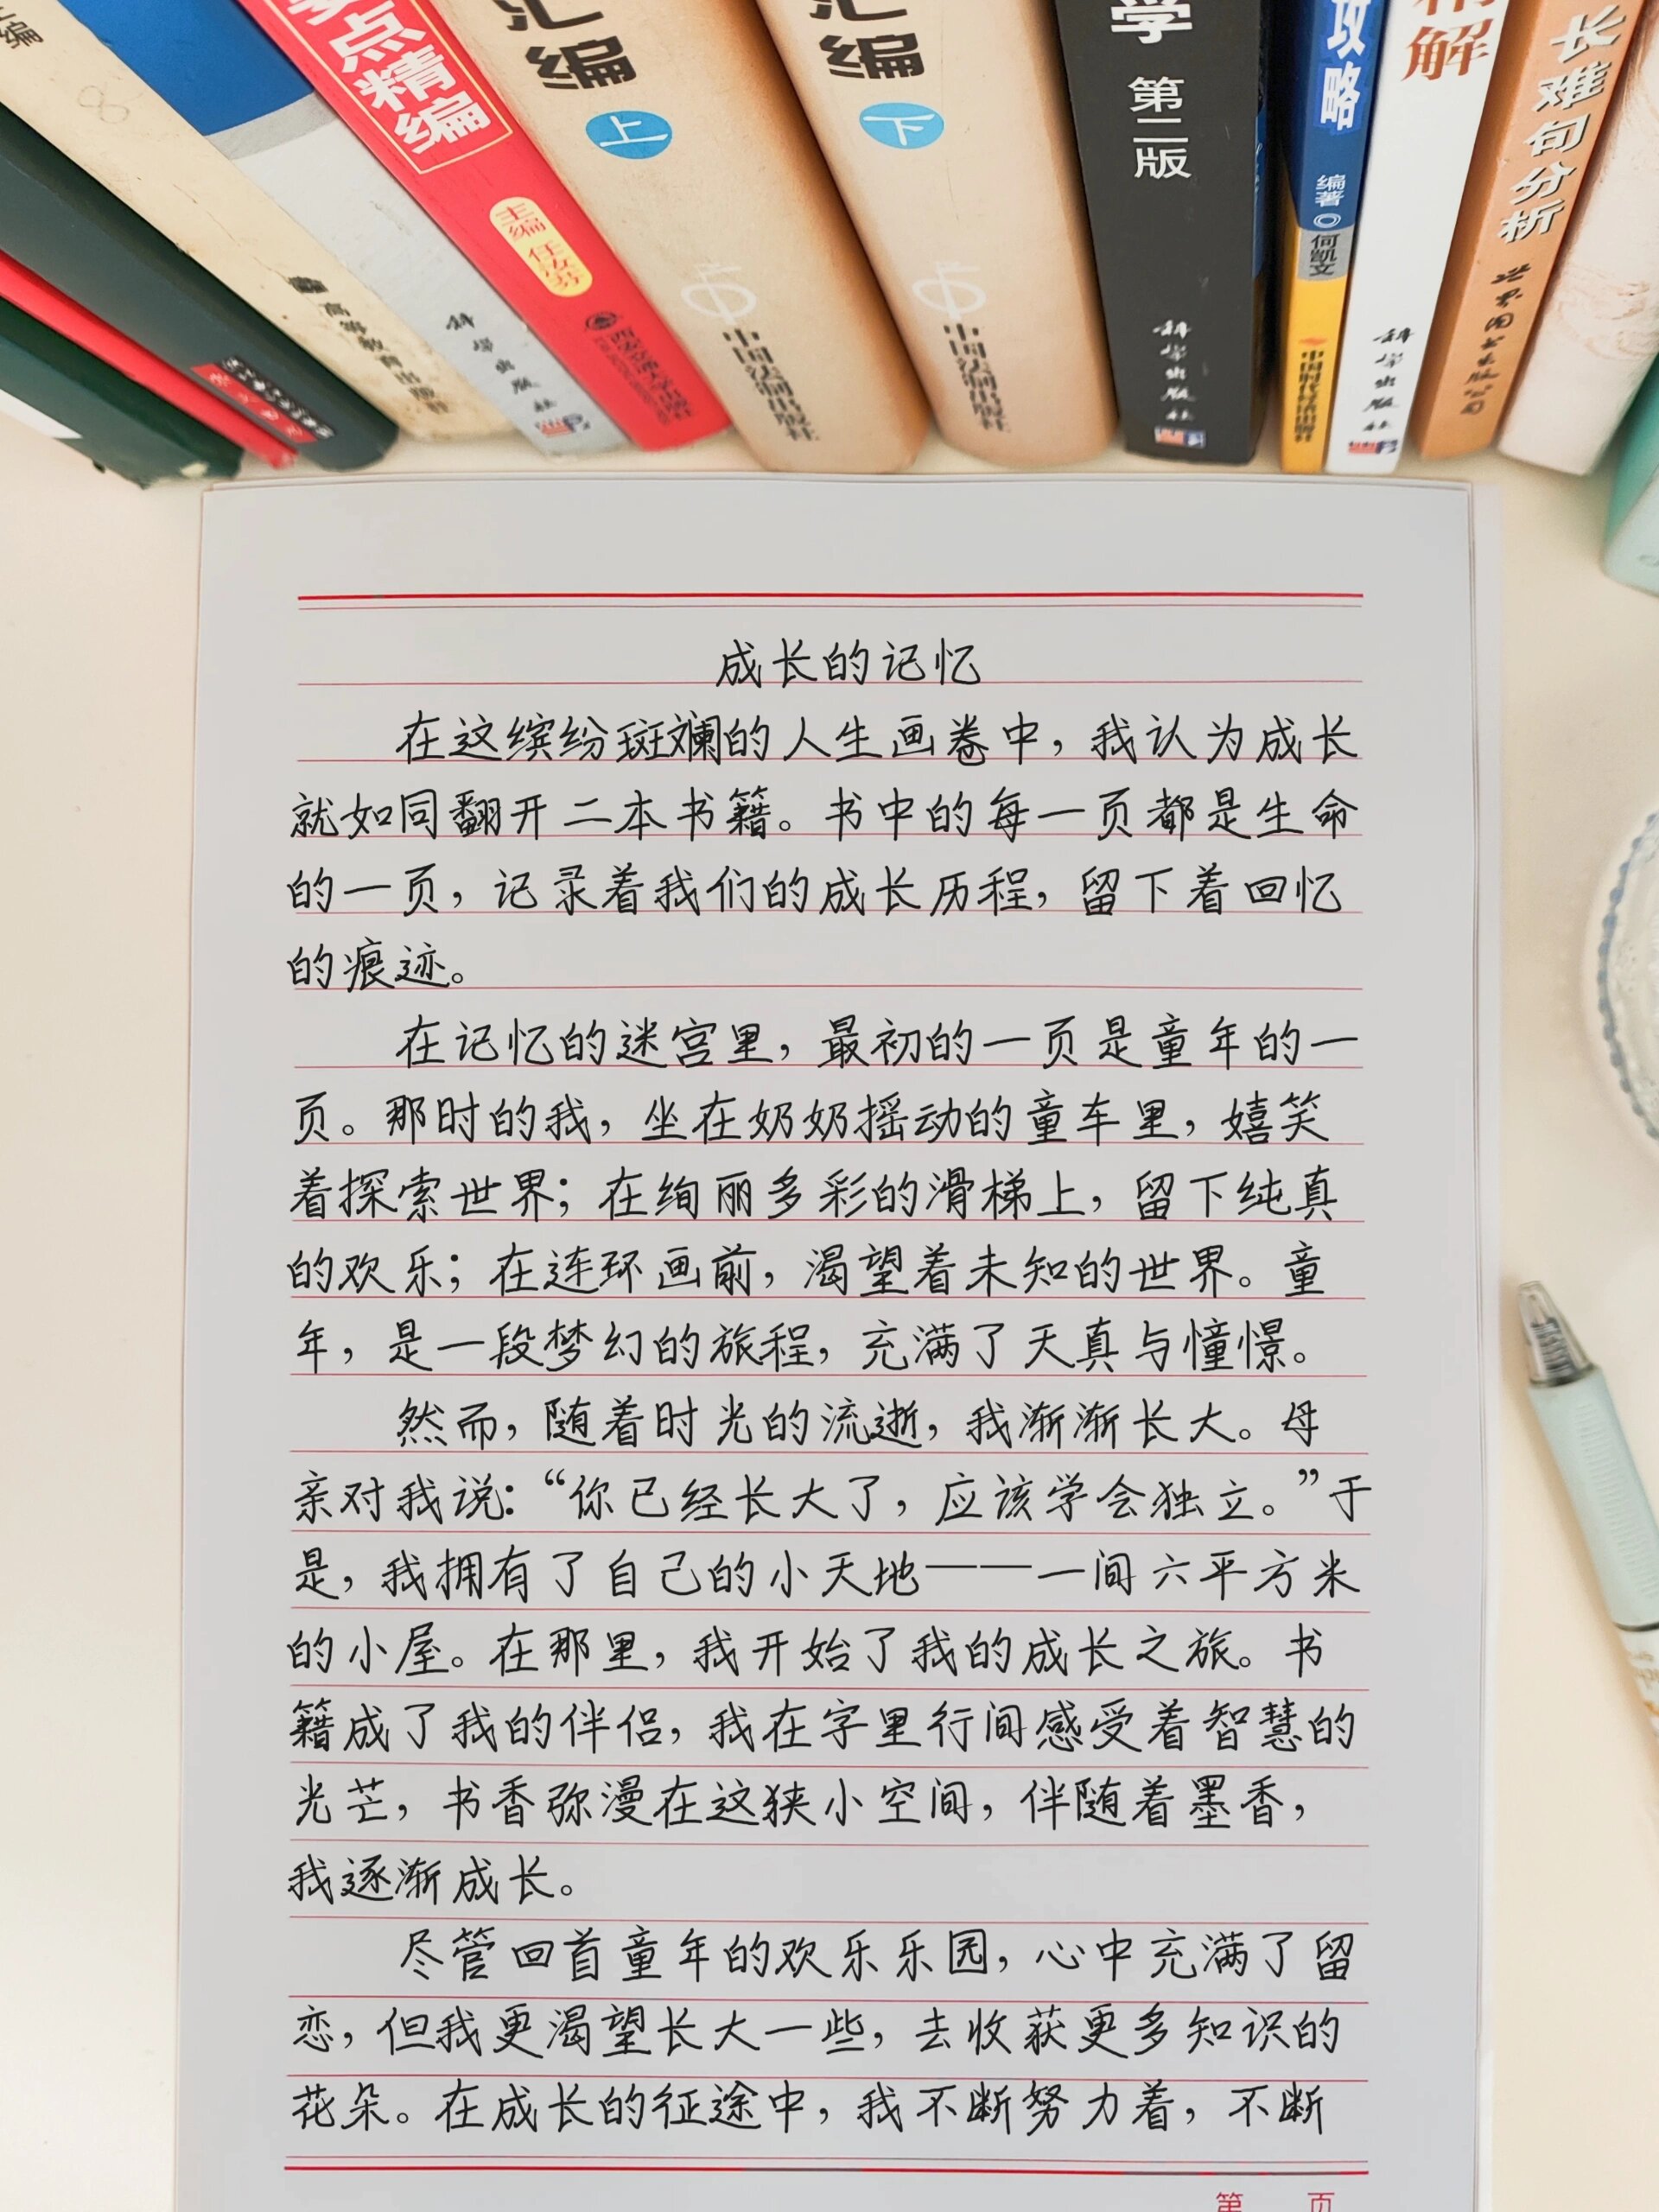 编
8
点精编
主编 任汝芬
汇编
上
汇编
下
学 第二版
攻略
编著◎何凯文
精解
长难句分析
高等教育出版社
科学出版社
西安交通大学出版社
中国法制出版社
中国法制出版社
科学出版社
中国时代经济出版社
科学出版社
世界图书出版公司
成长的记忆
在这缤纷斑斓的人生画卷中，我认为成长
就如同翻开二本书籍。书中的每一页都是生命
的一页，记录着我们的成长历程，留下着回忆
的痕迹。
在记忆的迷宫里，最初的一页是童年的一
页。那时的我，坐在奶奶摇动的童车里，嬉笑
着探索世界；在绚丽多彩的滑梯上，留下纯真
的欢乐；在连环画前，渴望着未知的世界。童
年，是一段梦幻的旅程，充满了天真与憧憬。
然而，随着时光的流逝，我渐渐长大。母
亲对我说：“你已经长大了，应该学会独立。”于
是，我拥有了自己的小天地——一间六平方米
的小屋。在那里，我开始了我的成长之旅。书
籍成了我的伴侣，我在字里行间感受着智慧的
光芒，书香弥漫在这狭小空间，伴随着墨香，
我逐渐成长。
尽管回首童年的欢乐乐园，心中充满了留
恋，但我更渴望长大一些，去收获更多知识的
花朵。在成长的征途中，我不断努力着，不断
第 页